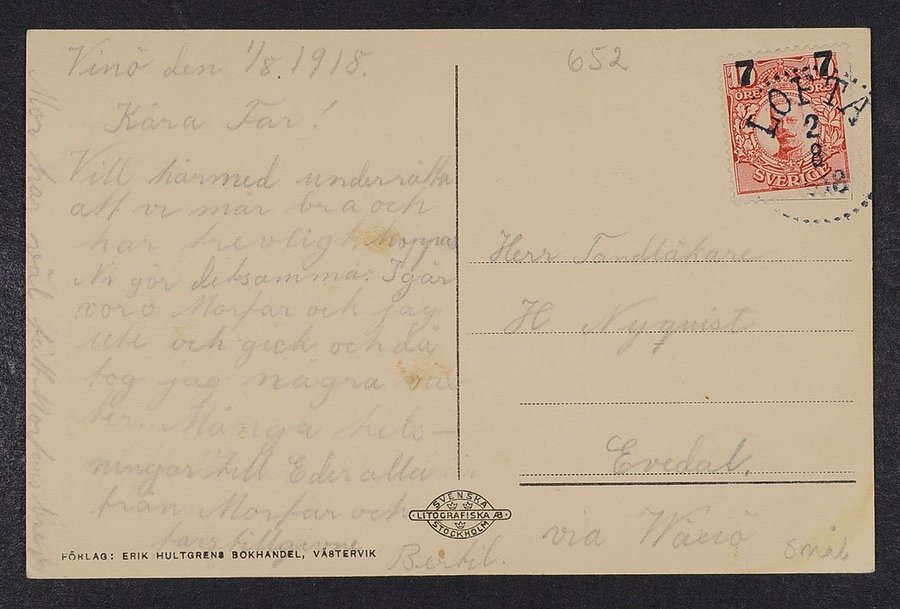 Vinö den 1/8 1918.
Kära Far!
Vill härmed underrätta
att vi mår bra och
har trevligt, hoppas
Ni gör detsamma. Igår
voro Morfar och jag
ute och gick och då
tog jag några
Många häls-
ningar till Eder alla
från Morfar och
tillgivne
Bertil.
Mor har väl fått
652
7 7
ÖRE
SVERIGE
LOFTA
2
8
18
Herr Tandläkare
H Nyquist
Evedal.
via
SVENSKA
LITOGRAFISKA AB
STOCKHOLM
FÖRLAG: ERIK HULTGRENS BOKHANDEL, VÄSTERVIK